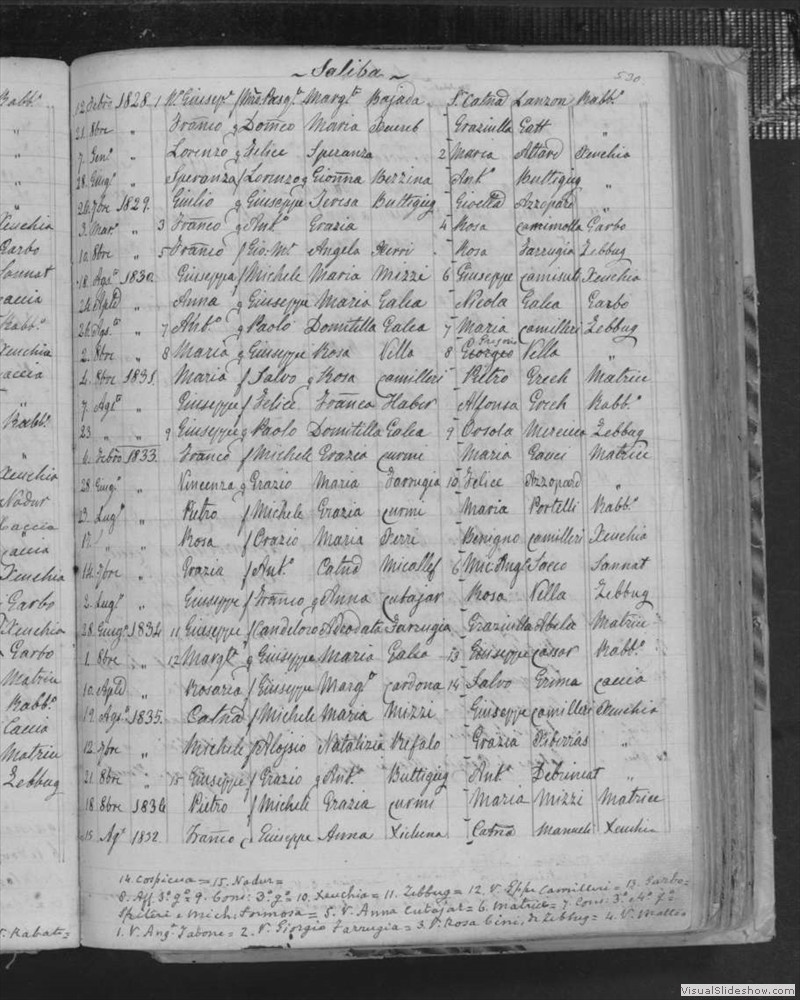 ~ Saliba ~ 530
12 Febro 1828 1 Wo Giusepe f Mro Pasqe Margta Bajada Sr Catnà Lanzon Rabbo
21. 8bre „ Franco g Domco Maria Xuereb Graziulla Gatt „
7. Geno „ Lorenzo g Felice Speranza 2 Maria Attard Xeuchia
28. Giugo „ Speranza f Lorenzo g Gionna Bezzina Anto Buttigieg „
26. 7bre 1829. Giulio g Giuseppe Teresa Buttigieg Gioetta Azzopard „
3. Maro „ 3 Franco g Anto Grazia 4 Rosa Camenzulla Garbo
10. 8bre „ 5 Franco f Gio. Ma Angela Xerri Rosa Farrugia Zebbug
18. Agto 1830 Giuseppa f Michele Maria Mizzi 6 Giuseppe Camisuli Xeuchia
24. Aple „ Anna g Giuseppe Maria Galea Nicola Galea Garbo
26. Agto „ 7 Anto g Paolo Domitilla Galea 7 Maria Camilleri Zebbug
2. 8bre „ 8 Maria g Giuseppe Rosa Vella 8 Giorgeo Vella „
4. 8bre 1831. Maria f Salvo g Rosa Camilleri Pietro Grech Matrice
7. Agto „ Giuseppe f Felice Franca Haber Alfonsa Grech Rabbo
23 „ „ 9 Giuseppe g Paolo Domitilla Galea 9 Orsola Mercieca Zebbug
6. Febro 1833. Franco f Michele Grazia Curmi Maria Gauci Matrice
28. Giugo „ Vincenza g Grazio Maria Farrugia 10 Felice Azzopard „
23. Lugo „ Pietro f Michele Grazia Curmi Maria Portelli Rabbo
17. „ „ Rosa f Orazio Maria Xerri Benigno Camilleri Xeuchia
14. 7bre „ Grazia f Anto Catnà Micallef 6 Mic. Angl Sacco Sannat
2. Lugo „ Giuseppe f Franco g Anna Cutajar Rosa Vella Zebbug
28. Giugo 1834 11 Giuseppe f Candeloro Adeodata Farrugia Graziulla Abela Matrice
1. 8bre „ 12 Margta g Giuseppe Maria Galea 13 Giuseppe Cassar Rabbo
10. Aple „ Rosaria f Giuseppe Margta Cardona 14 Salvo Grima Caccia
19. Agto 1835. Catnà f Michele Maria Mizzi Giuseppe Camilleri Xeuchia
12. 7bre „ Michele f Aloysio Natalizia Refalo Grazia Xiberras „
21. 8bre „ 15 Giuseppe f Grazio g Anta Buttigieg Anto Debrincat „
18. 8bre 1836 Pietro f Michele Grazia Curmi Maria Mizzi Matrice
15. Ago 1832 Franco Giuseppe Anna Xicluna Catnà Manueli Xeuchia
14. Cospicua = 15. Nadur =
8. Aff. 3o. go = 9. Cons: 3o. go = 10. Xeuchia = 11. Zebbug = 12. V. Eppe Camilleri = 13. Garbo =
Spiteri e Mich. Formosa = 5. V. Anna Cutajar = 6. Matrice = 7. Cons: 3o. 4o. go =
1. V. Ango Tabone = 2. V. Giorgio Farrugia = 3. V. Rosa Cini, di Zebbug = 4. V. Matteo
Rabbo
„
„
„
„
Xeuchia
Garbo
Sannat
Caccia
Rabbo
Xeuchia
Caccia
„
Rabbo
„
Xeuchia
Nadur
Caccia
Caccia
Xeuchia
Garbo
Xeuchia
Garbo
Matrice
Rabbo
Caccia
Matrice
Zebbug
V. Rabato =
VisualSlideshow.com